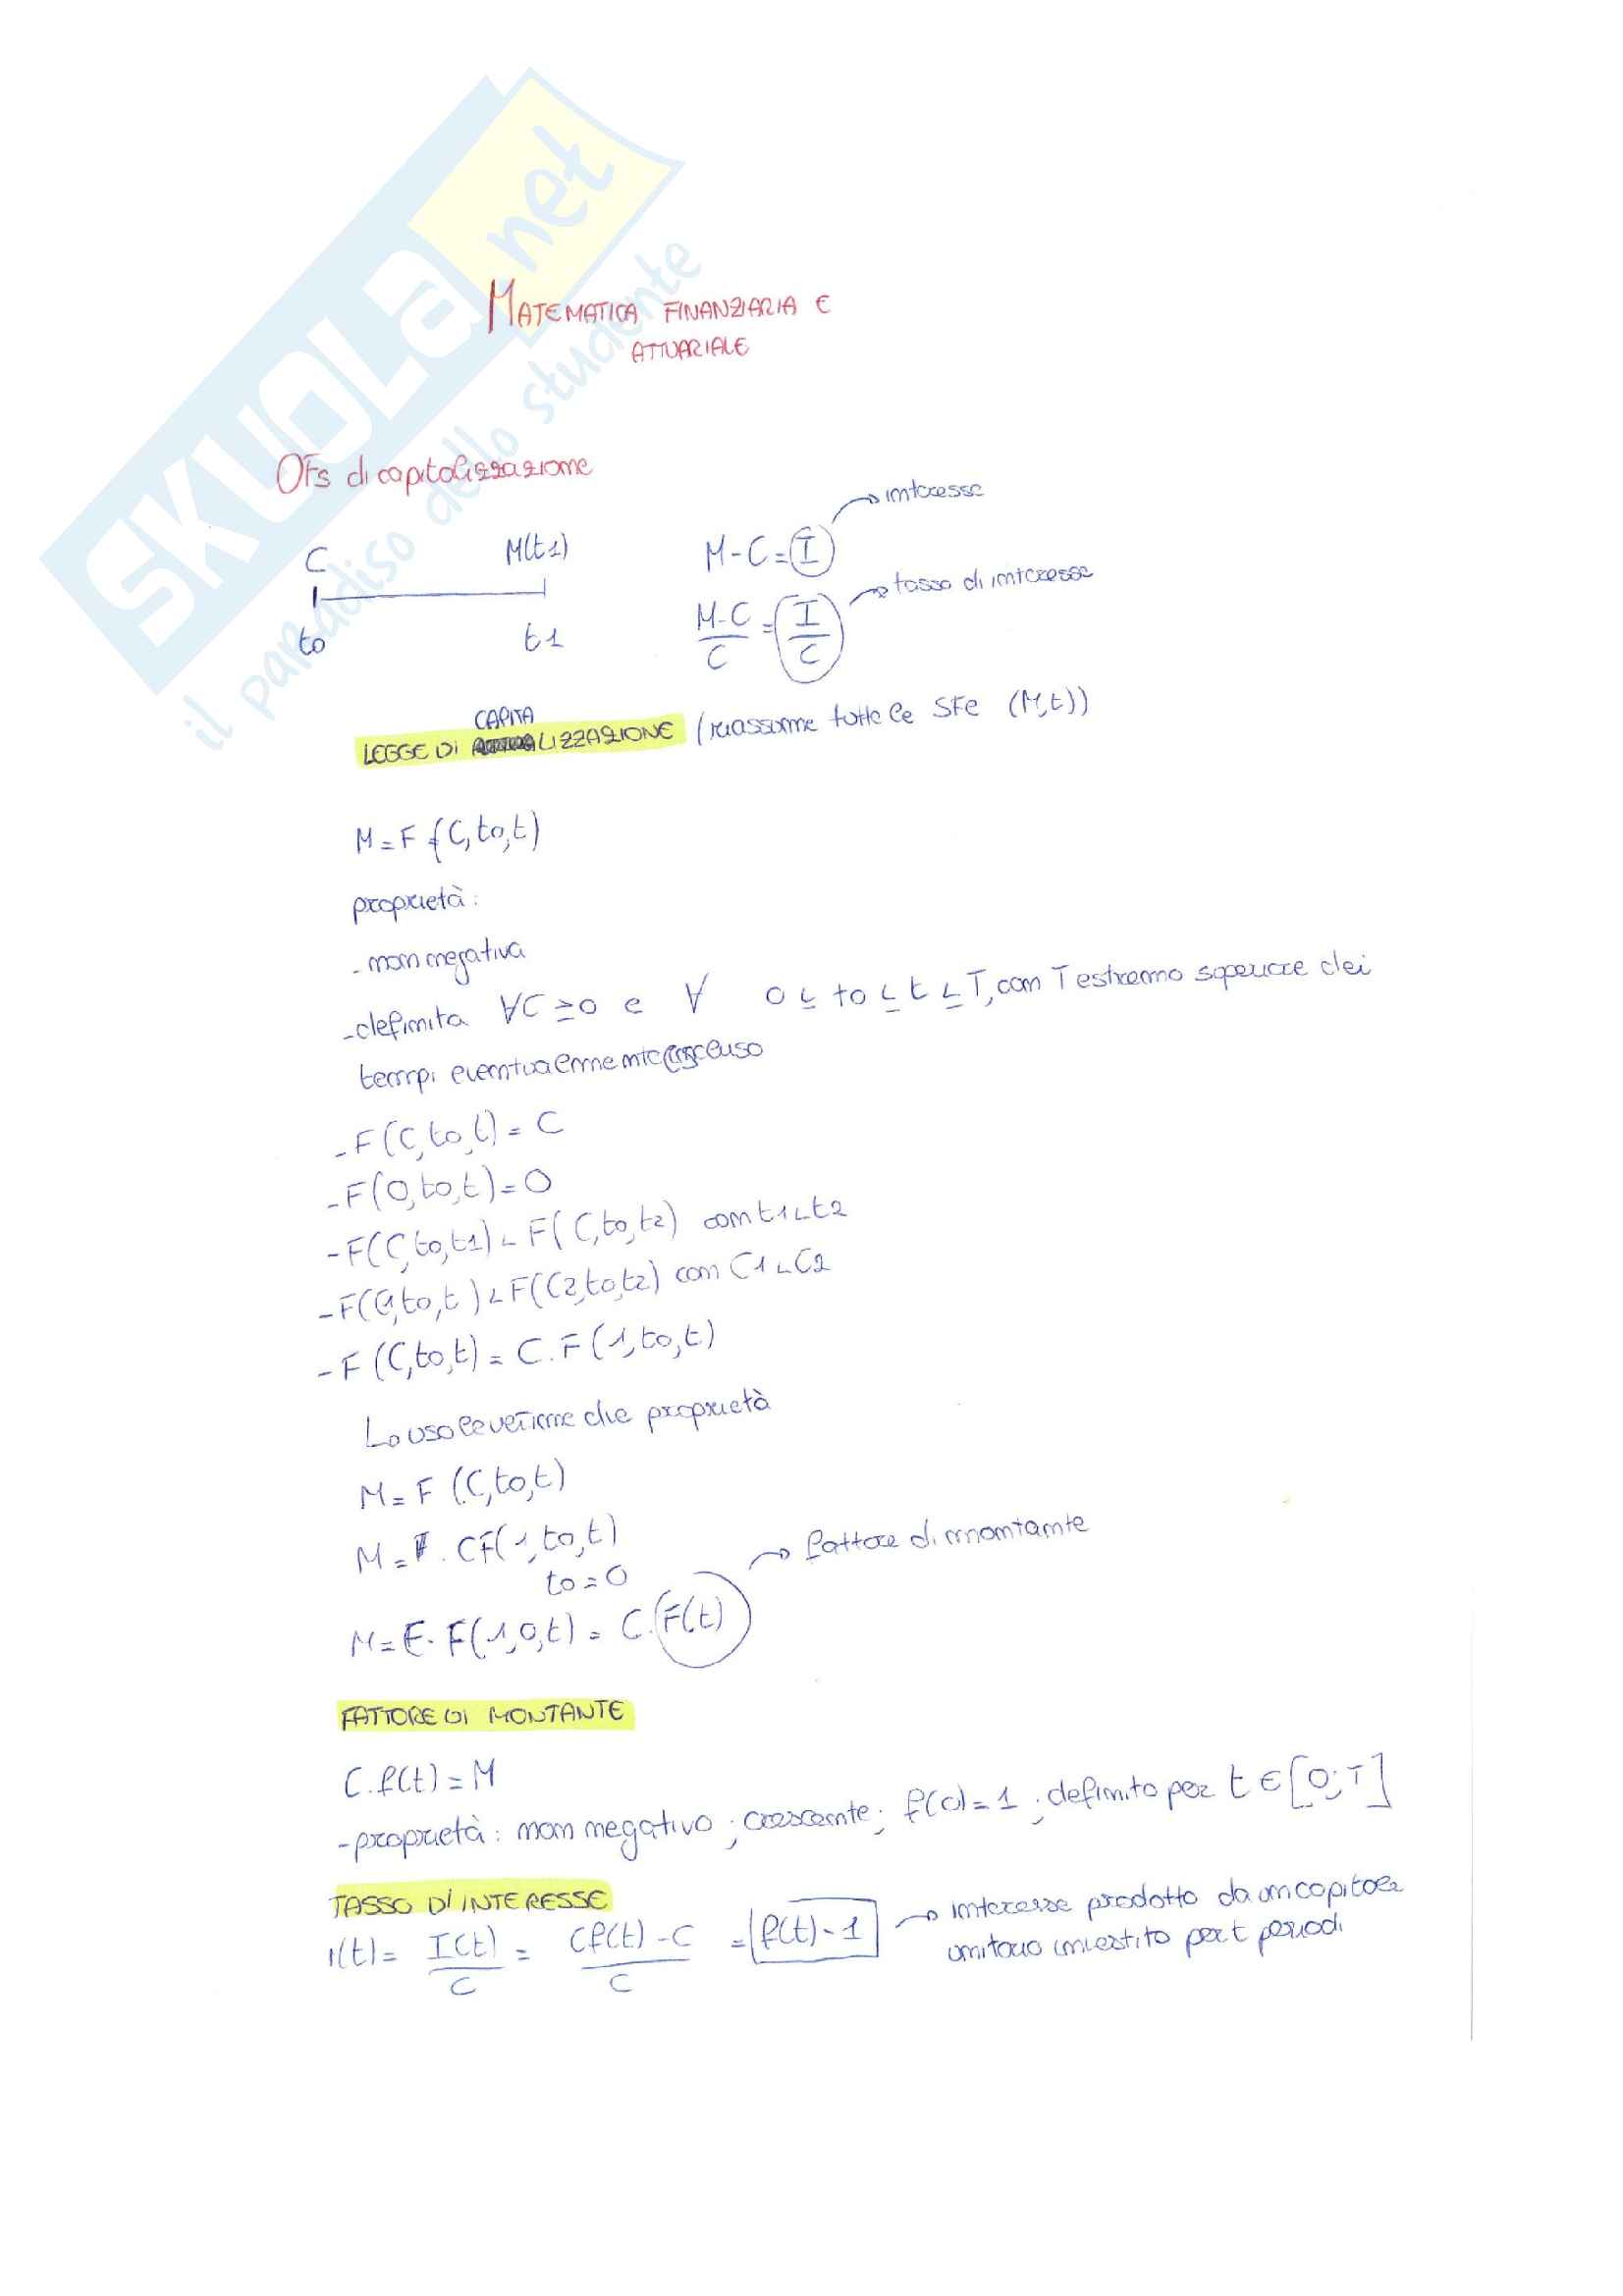 SKUOLA.net
il paradiso dello studente
MATEMATICA FINANZIARIA E
ATTUARIALE
OFs di capitalizzazione
C M(t1) M-C=I → interesse
t0 t1 M-C/C = I/C → tasso di interesse
CAPITA
LEGGE DI LIZZAZIONE (riassume tutte le SFe (M,t))
M=F(C,t0,t)
proprietà:
-non negativa
-definita ∀C≥0 e ∀ 0≤t0≤t≤T, con T estremo superiore dei
tempi eventualmente
-F(C,t0,t)=C
-F(0,t0,t)=0
-F(C,t0,t1)<F(C,t0,t2) con t1<t2
-F(C1,t0,t)<F(C2,t0,t2) con C1<C2
-F(C,t0,t)=C.F(1,t0,t)
↳ uso le ultime due proprietà
M=F(C,t0,t)
M= . CF(1,t0,t)
t0=0
M=C. F(1,0,t)= C.F(t) → fattore di montante
FATTORE DI MONTANTE
C.f(t)=M
-proprietà: non negativo; crescente; f(0)=1; definito per t∈[0;T]
TASSO DI INTERESSE
i(t)= I(t)/C = Cf(t)-C/C = f(t)-1 → interesse prodotto da un capitale
unitario investito per t periodi